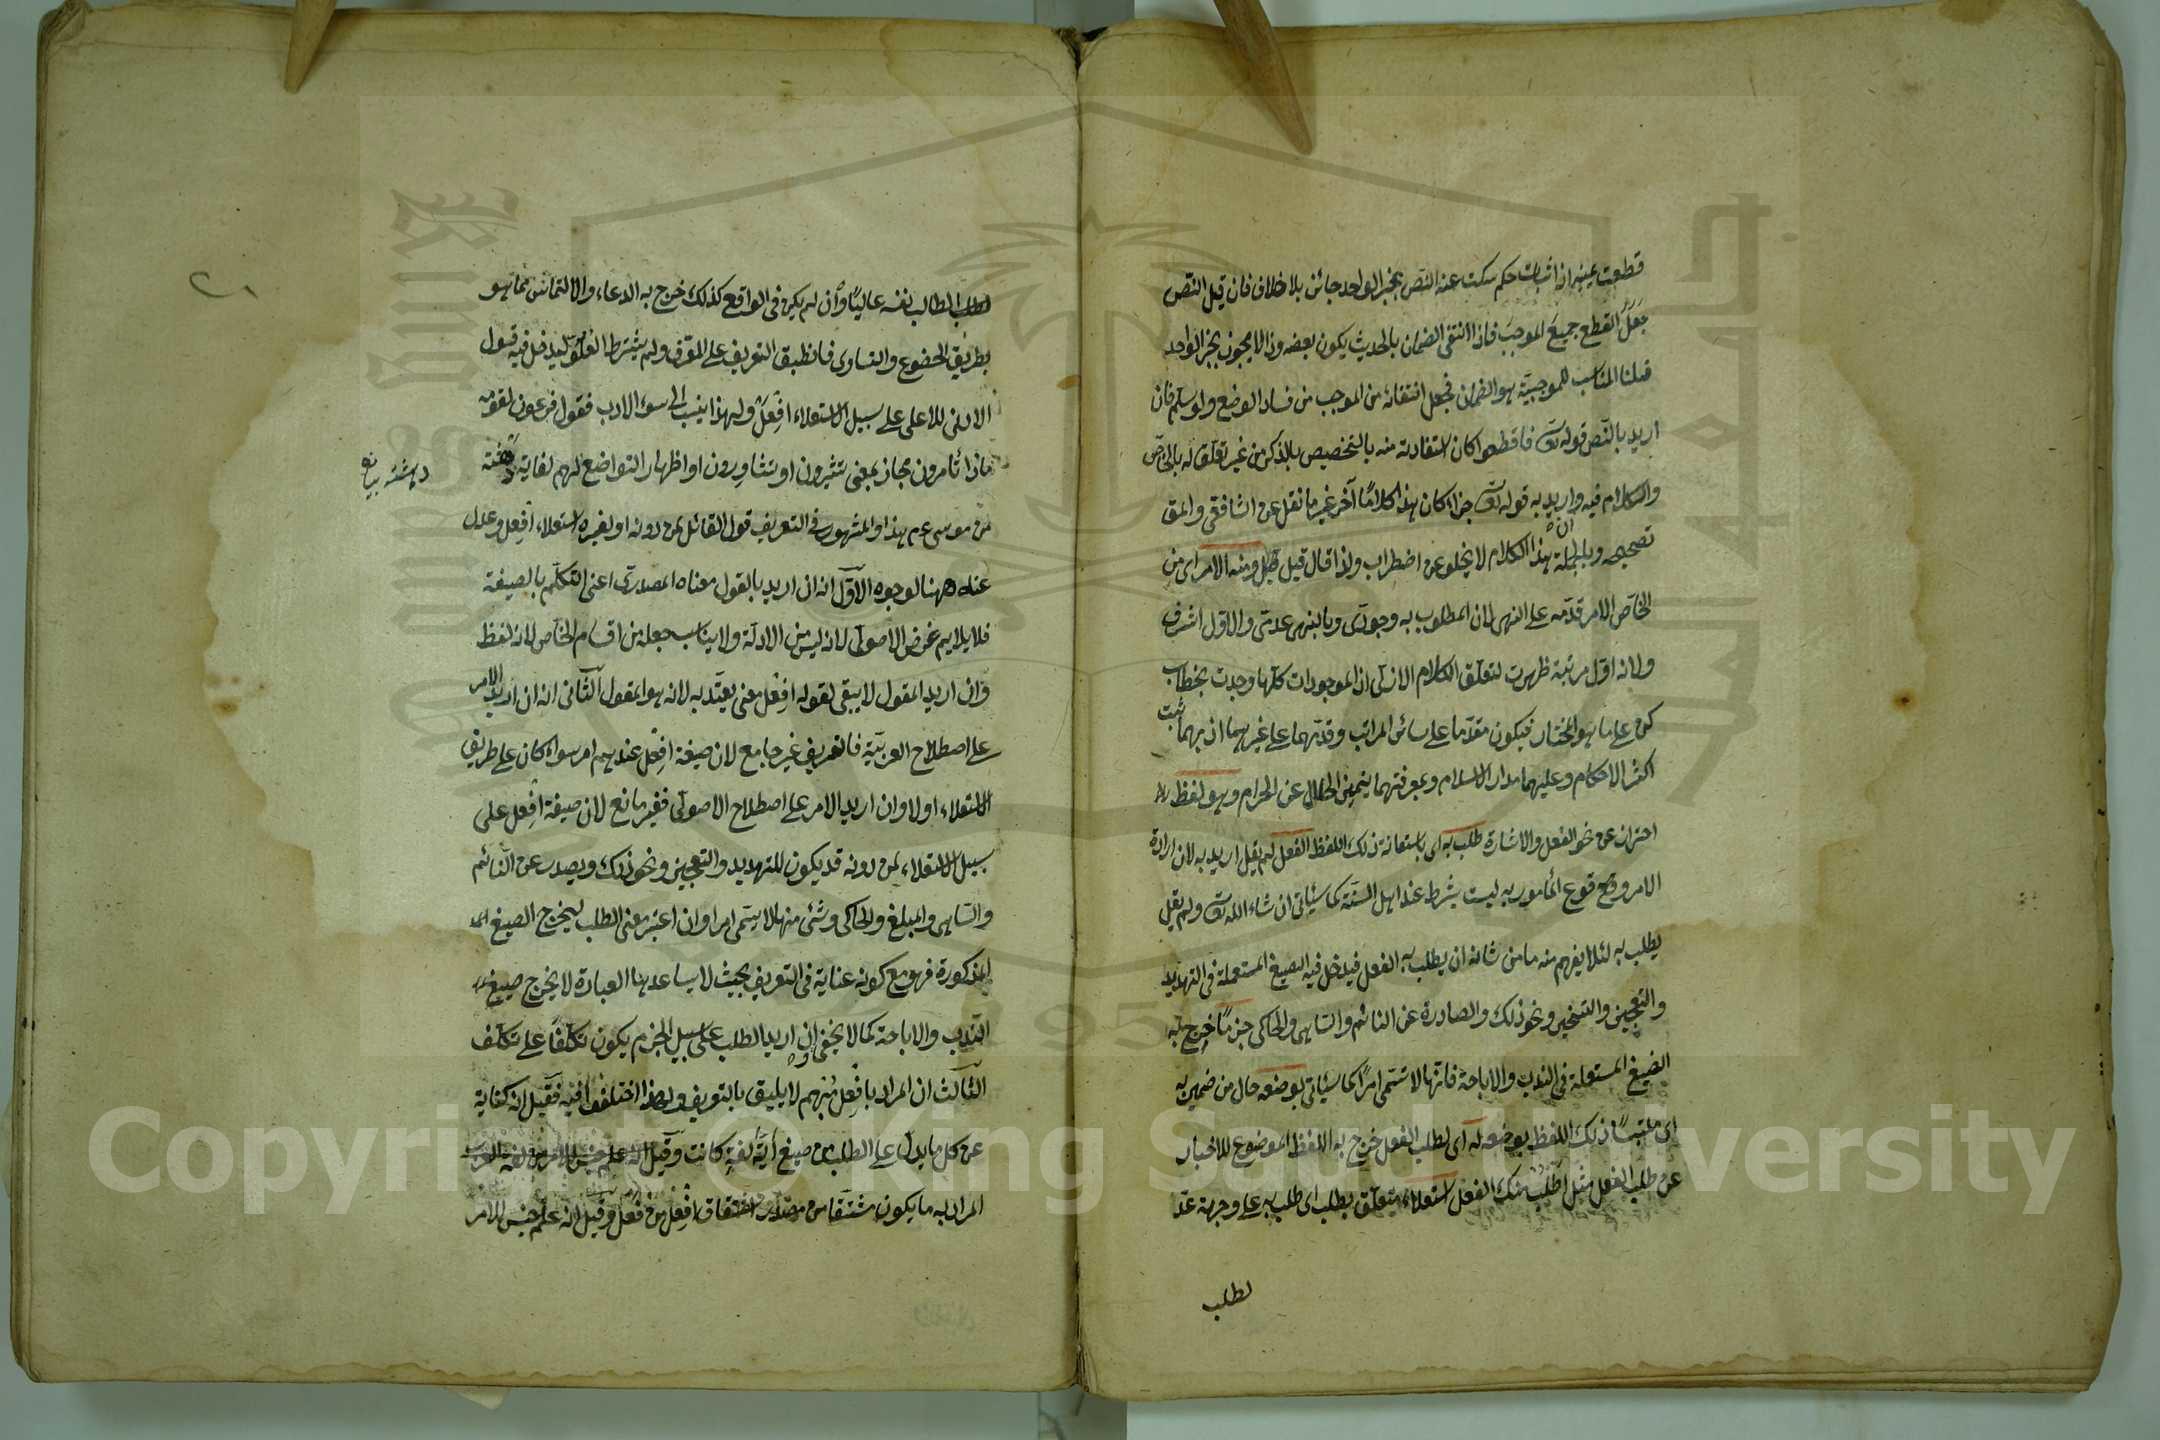 قطعت يمينه اذ اثبات حكم سكت عنه النص بخبر الواحد جائز بلا خلاف فان قيل النص
جعل القطع جميع الموجب فاذا انتفى الضمان بالحديث يكون بعضه وذا لا يجوز بخبر الواحد
قلنا المناسب للموجبية هو الضمان فجعل انتفائه من الموجب من فساد الوضع ولو سلم فان
اريد بالنص قوله تع فاقطعوا كان استفادته منه بالتخصيص بالذكر من غير تعلق له بالخاص
والكلام فيه واريد به قوله تع جزاء كان هذا كلاما آخر غير ما نقل عن الشافعي والمق
تصحيحه وبالجملة ان هذا الكلام لا يخلو عن اضطراب ولذا قال قيل ومنه الامر اى من
الخاص الامر قدّمه على النهى لان المطلوب به وجودىّ وبالنهى عدمىّ والاول اشرف
ولانه اول مرتبة ظهرت لتعلق الكلام الازلى اذ الموجودات كلها وجدت بخطاب
كن على ما هو المختار فيكون مقدّما على سائر المراتب وقدّمهما على غيرهما اذ بهما ثبت
اكثر الاحكام وعليهما مدار الاسلام وبمعرفتهما يتميز الحلال عن الحرام وهو لفظ
احتراز عن نحو الفعل والاشارة طلب به اى باستعانة ذلك اللفظ الفعل لم يقل اريد به لان ارادة
الامر وقوع المأمور به ليست بشرط عند اهل السنّة كما سيأتى ان شاء الله تع ولم يقل
يطلب به لئلا يفهم منه ما من شانه ان يطلب به الفعل فيدخل فيه الصيغ المستعملة فى التهديد
والتعجيز والتسخير ونحو ذلك والصادرة عن النائم والساهى والحاكى جزما خرج به
الصيغ المستعملة فى الندب والاباحة فانها لا تسمى امرا كما سيأتى بوضعه حال من ضمير به
اى ملتبسا ذلك اللفظ بوضعه له اى لطلب الفعل خرج به اللفظ الموضوع للاخبار
عن طلب الفعل مثل اطلب منك الفعل استعلاء متعلق بطلب اى طلب به على وجهة عدّ
لطلب
٢٠
لطلب الطالب نفسه عاليا وان لم يكن فى الواقع كذلك خرج به الدعاء والالتماس مما هو
بطريق الخضوع والتساوى فانطبق التعريف على المعرّف ولم يشترط العلوّ ليدخل فيه قول
الادنى للاعلى على سبيل الاستعلاء افعل ولهذا ينسب الى سوء الادب فقول فرعون لقومه
ماذا تأمرون مجاز بمعنى تشيرون او تشاورون او اظهار التواضع لهم لغاية دهشته
دهشته بيانه
من موسى عم هذا والمشهور فى التعريف قول القائل لمن دونه او لغيره استعلاء افعل وعدل
عنه ههنا لوجوه الاوّل انه ان اريد بالقول معناه المصدرىّ اعنى التكلّم بالصيغة
فلا يلايم غرض الاصولى لانه ليس من الادلّة ولا يناسب جعله من اقسام الخاص لانه لفظ
وان اريد المقول لا يبقى لقوله افعل معنى يعتدّ به لانه هو المقول الثانى انه ان اريد الامر
على اصطلاح العربيّة فالتعريف غير جامع لان صيغة افعل عندهم امر سواء كان على طريق
الاستعلاء اولا وان اريد الامر على اصطلاح الاصولى فغير مانع لان صيغة افعل على
سبيل الاستعلاء لمن دونه قد يكون للتهديد والتعجيز ونحو ذلك ويصدر عن النائم
والساهى والمبلغ والحاكى وشئ منها لا يسمى امرا وان اعتبر معنى الطلب ليخرج الصيغ
المذكورة فهو مع كونه عناية فى التعريف بحيث لا يساعدها العبارة لا يخرج صيغ
الندب والاباحة كما لا يخفى ان اريد الطلب على سبيل الجزم يكون تكلّفا على تكلّف
الثالث ان المراد بافعل مبهم لا يليق بالتعريف ولهذا اختلفوا فيه فقيل انه كناية
عن كل ما يدلّ على الطلب من صيغ ايّة لغة كانت وقيل انه علم جنس للامر من لغة العرب
المراد به ما يكون مشتقا من مصدر اشتقاق افعل من فعل وقيل انه علم جنس للامر